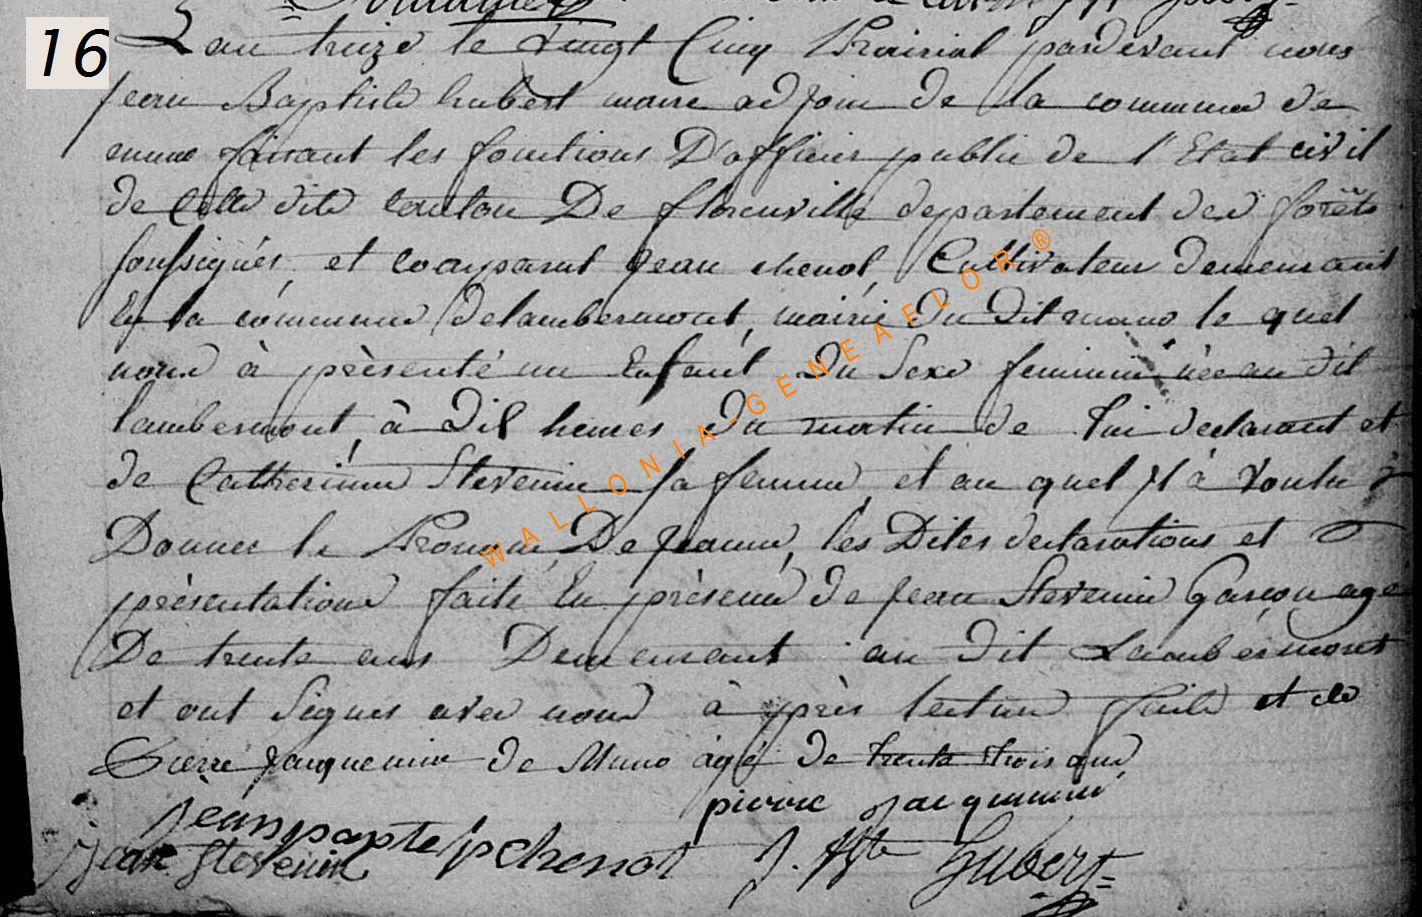 16
L an treize le vingt Cinq Prairial pardevant nous
jean Baptiste hubert maire adjoin de la commune de
muno faisant les fonctions D'officier public de l'Etat civil
de Celle dite Canton De florenville departement des forêts
soussignés, et comparut jean chenot, Cultivateur demeurant
En la commune Delambermont, mairie Du Dit muno le quel
nous à présenté un Enfant Du Sexe feminin née au dit
lambermont, à Dix heures Du matin de lui declarant et
de Catherinne Stevenin sa femme, et au quel Il à voulu
Donner le Prenom De jeanne, les Dites declarations et
présentations faite En présence De jean Stevenin Garçon agé
De trente ans Demeurant au Dit Lambermont
et ont Signés avec nous à près lecture faite et de
Pierre jacquemin de Muno agé de trente trois ans
pierre jacquemin
jean bapte chenot J. Bte Hubert
jean Stevenin
WALLONIA-GENEAFLOR ®